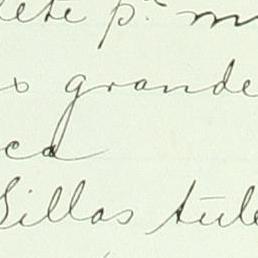 lete p.ª m
grande
ca
Sillas tule